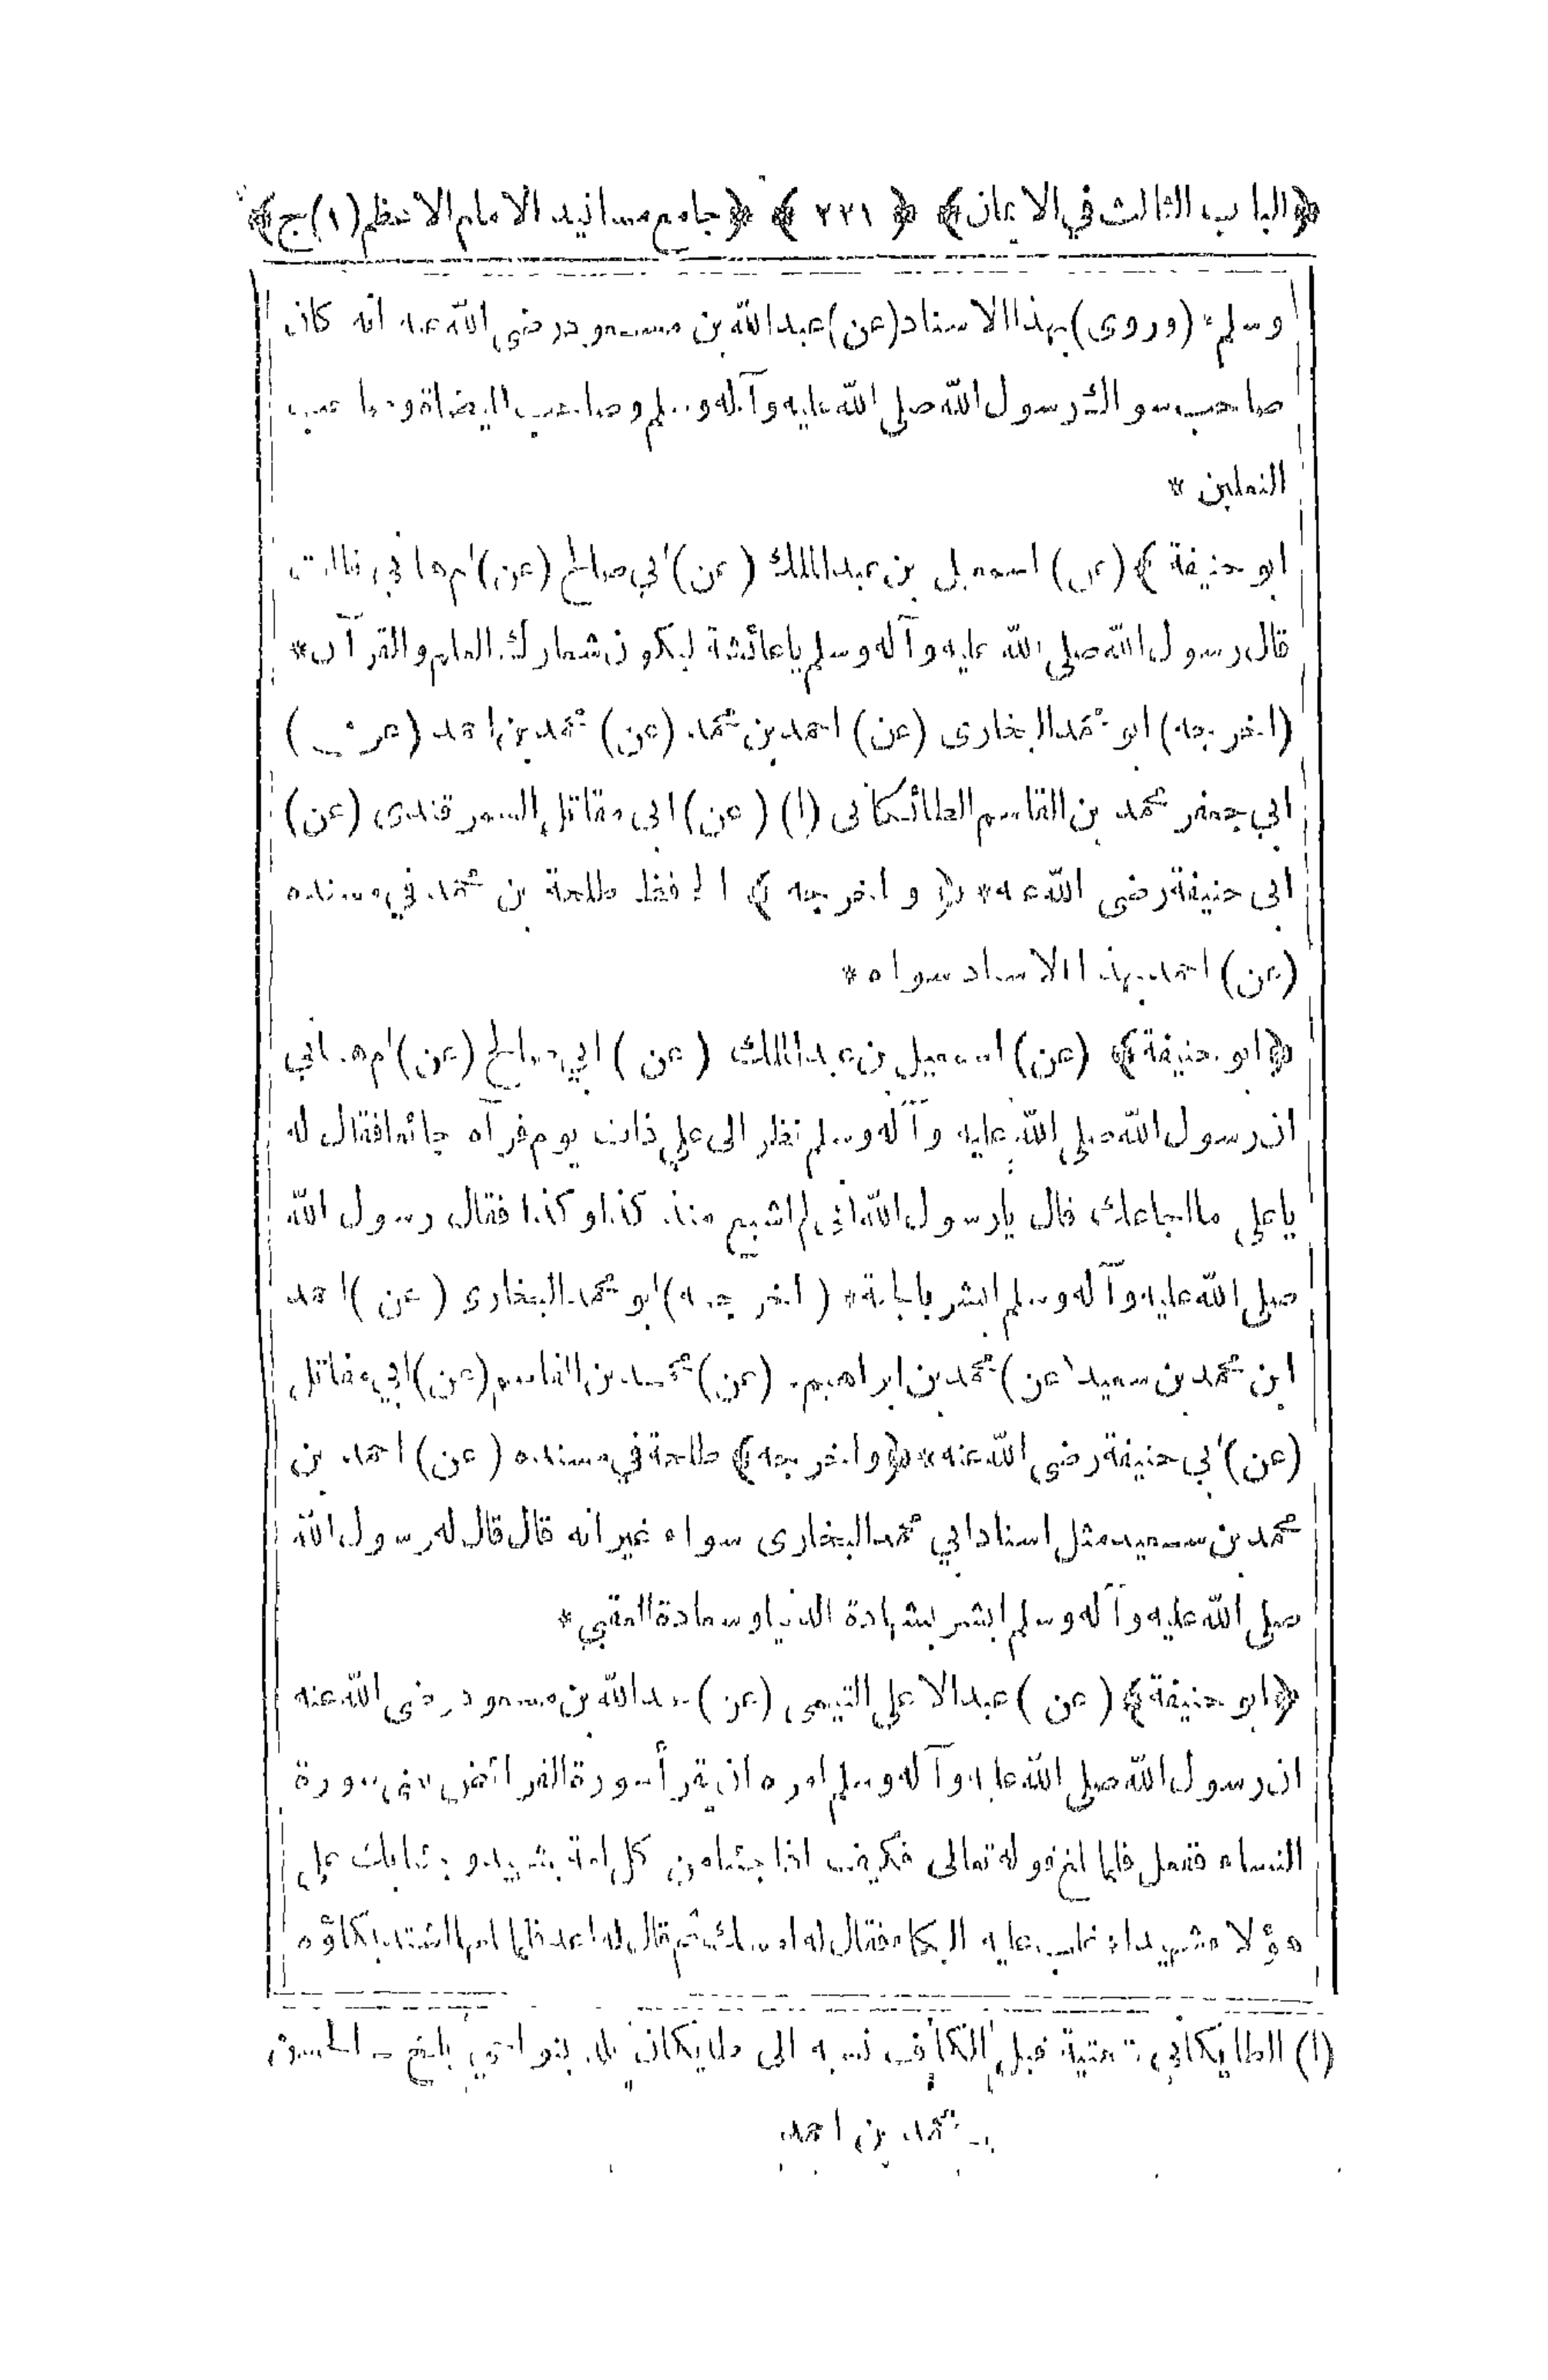 ﴿الباب الثالث في الايمان﴾ ﴿ ٢٢١ ﴾ ﴿جامع مسانيد الامام الاعظم (١) ج﴾
وسلم* (وروى) بهذا الاسناد (عن) عبد الله بن مسعود رضى الله عنه انه كان
صاحب سواك رسول الله صلى الله عليه وآله وسلم وصاحب الميضاة وصاحب
النعلين *
ابو حنيفة ﴾ (عن) اسمعيل بن عبد الملك (عن) ابي صالح (عن) ام هانى قالت
قال رسول الله صلى الله عليه وآله وسلم يا عائشة ليكون شعارك العلم والقرآن*
(اخرجه) ابو محمد البخارى (عن) احمد بن محمد (عن) محمد بن احمد (عن)
ابي جعفر محمد بن القاسم الطائكانى (١) (عن) ابى مقاتل السمرقندى (عن)
ابى حنيفة رضى الله عنه* ﴿ و اخرجه ﴾ الحافظ طلحة بن محمد في مسنده
(عن) احمد بهذا الاسناد سواء *
﴿ابو حنيفة﴾ (عن) اسمعيل بن عبد الملك (عن) ابي صالح (عن) ام هانى
ان رسول الله صلى الله عليه وآله وسلم نظر الى علي ذات يوم فرآه جائعا فقال له
يا على ما اجاعك قال يا رسول الله انى لم اشبع منذ كذا وكذا فقال رسول الله
صلى الله عليه وآله وسلم ابشر بالجنة* (اخرجه) ابو محمد البخارى (عن) احمد
ابن محمد بن سعيد (عن) محمد بن ابراهيم (عن) محمد بن القاسم (عن) ابي مقاتل
(عن) ابي حنيفة رضى الله عنه* ﴿واخرجه﴾ طلحة في مسنده (عن) احمد بن
محمد بن سعيد مثل اسناد ابي محمد البخارى سواء غير انه قال قال له رسول الله
صلى الله عليه وآله وسلم ابشر بشهادة الدنيا وسعادة العقبي *
﴿ابو حنيفة﴾ (عن) عبد الاعلى التيمى (عن) عبد الله بن مسعود رضى الله عنه
ان رسول الله صلى الله عليه وآله وسلم امره ان يقرأ سورة الفرائض يعنى سورة
النساء ففعل فلما بلغ قوله تعالى فكيف اذا جئنا من كل امة بشهيد وجئنا بك على
هؤلاء شهيدا غلب عليه البكاء فقال له امسك ثم قال له اعد فلما اعاد اشتد بكاؤه
(١) الطايكانى بتحتية قبل الكاف نسبه الى طايكان بلد بنواحي بلخ - الحسن
محمد بن احمد